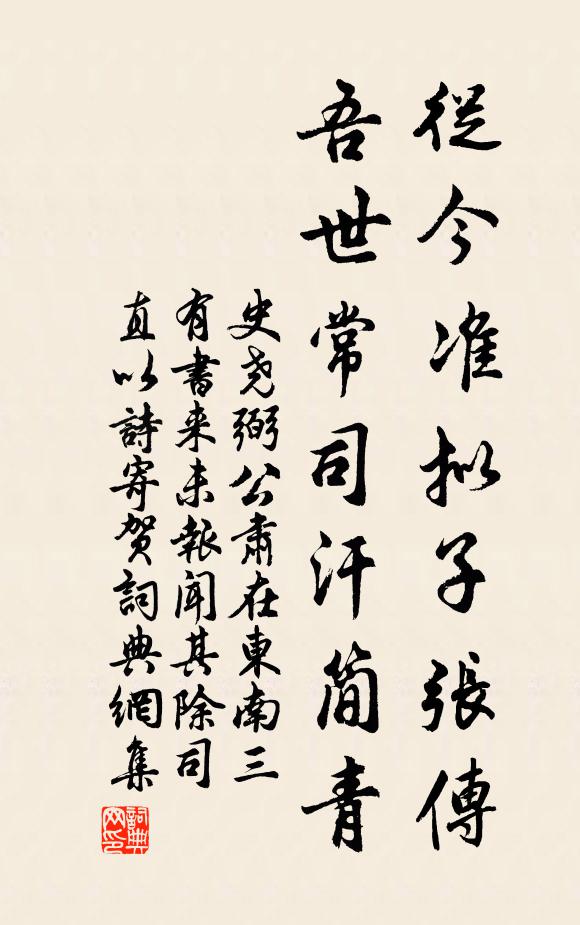 從今准拟子張傳
吾世常司汗简青
史堯弼公肅在東南三
有書来未報闻其除司
直以詩寄贺詞典網集
詞典网印